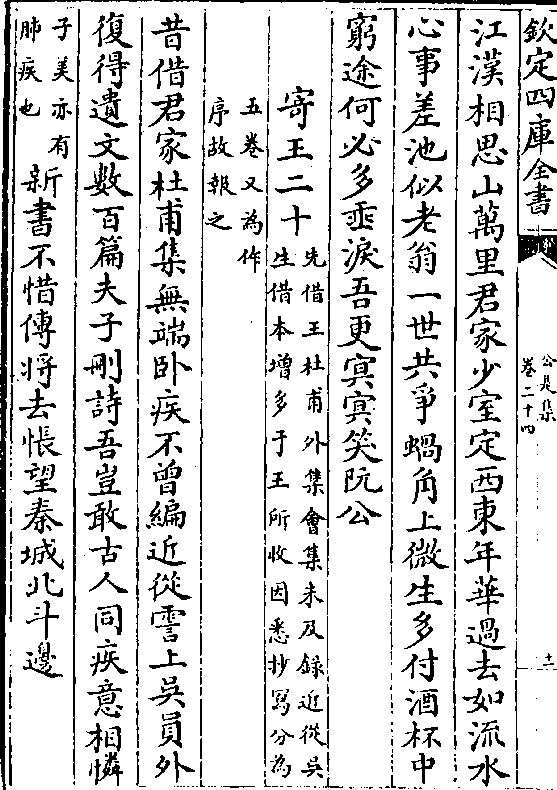 欽定四庫全書
公是集
卷二十四
十一
江漢相思山萬里君家少室定西東年華過去如流水
心事差池似老翁一世共爭蝸角上微生多付酒杯中
窮途何必多垂淚吾更冥冥笑阮公
寄王二十
先借王杜甫外集會集未及録近從吳
生借本增多于王所收因悉抄寫分為
五卷又為作
序故報之
昔借君家杜甫集無端卧疾不曾編近從霅上吳員外
復得遺文數百篇夫子刪詩吾豈敢古人同疾意相憐
子美亦有
肺疾也
新書不惜傳將去悵望秦城北斗邊